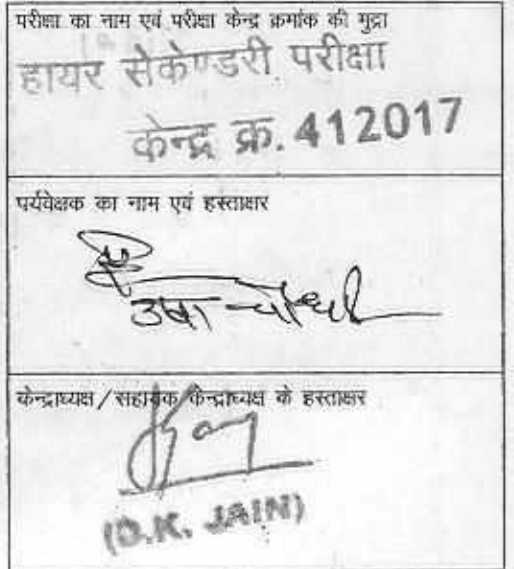 परीक्षा का नाम एवं परीक्षा केन्द्र क्रमांक की मुद्रा
हायर सेकेण्डरी परीक्षा
केन्द्र क्र. 412017
पर्यवेक्षक का नाम एवं हस्ताक्षर
उषा चौधरी
केन्द्राध्यक्ष/सहायक केन्द्राध्यक्ष के हस्ताक्षर
(D.K. JAIN)